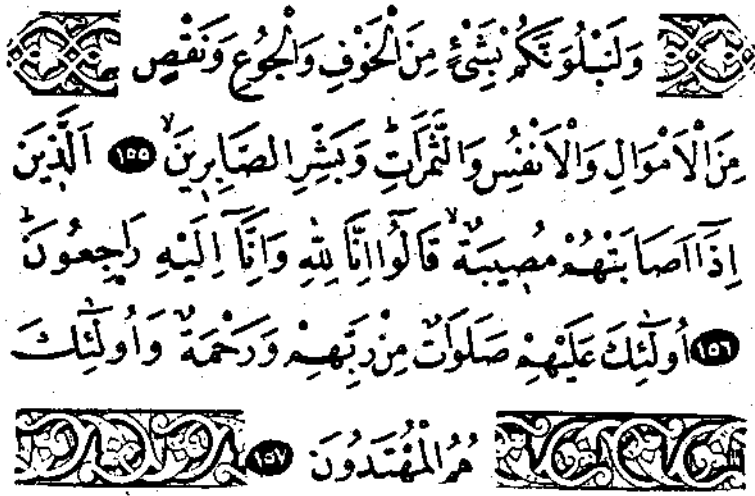 وَلَنَبْلُوَنَّكُمْ بِشَيْءٍ مِنَ الْخَوْفِ وَالْجُوعِ وَنَقْصٍ
مِنَ الْاَمْوَالِ وَالْاَنْفُسِ وَالثَّمَرَاتِۜ وَبَشِّرِ الصَّابِرِينَۙ ١٥٥ اَلَّذِينَ
اِذَٓا اَصَابَتْهُمْ مُصِيبَةٌۙ قَالُٓوا اِنَّا لِلّٰهِ وَاِنَّٓا اِلَيْهِ رَاجِعُونَۜ
١٥٦ اُولٰٓئِكَ عَلَيْهِمْ صَلَوَاتٌ مِنْ رَبِّهِمْ وَرَحْمَةٌ وَاُولٰٓئِكَ
هُمُ الْمُهْتَدُونَ ١٥٧